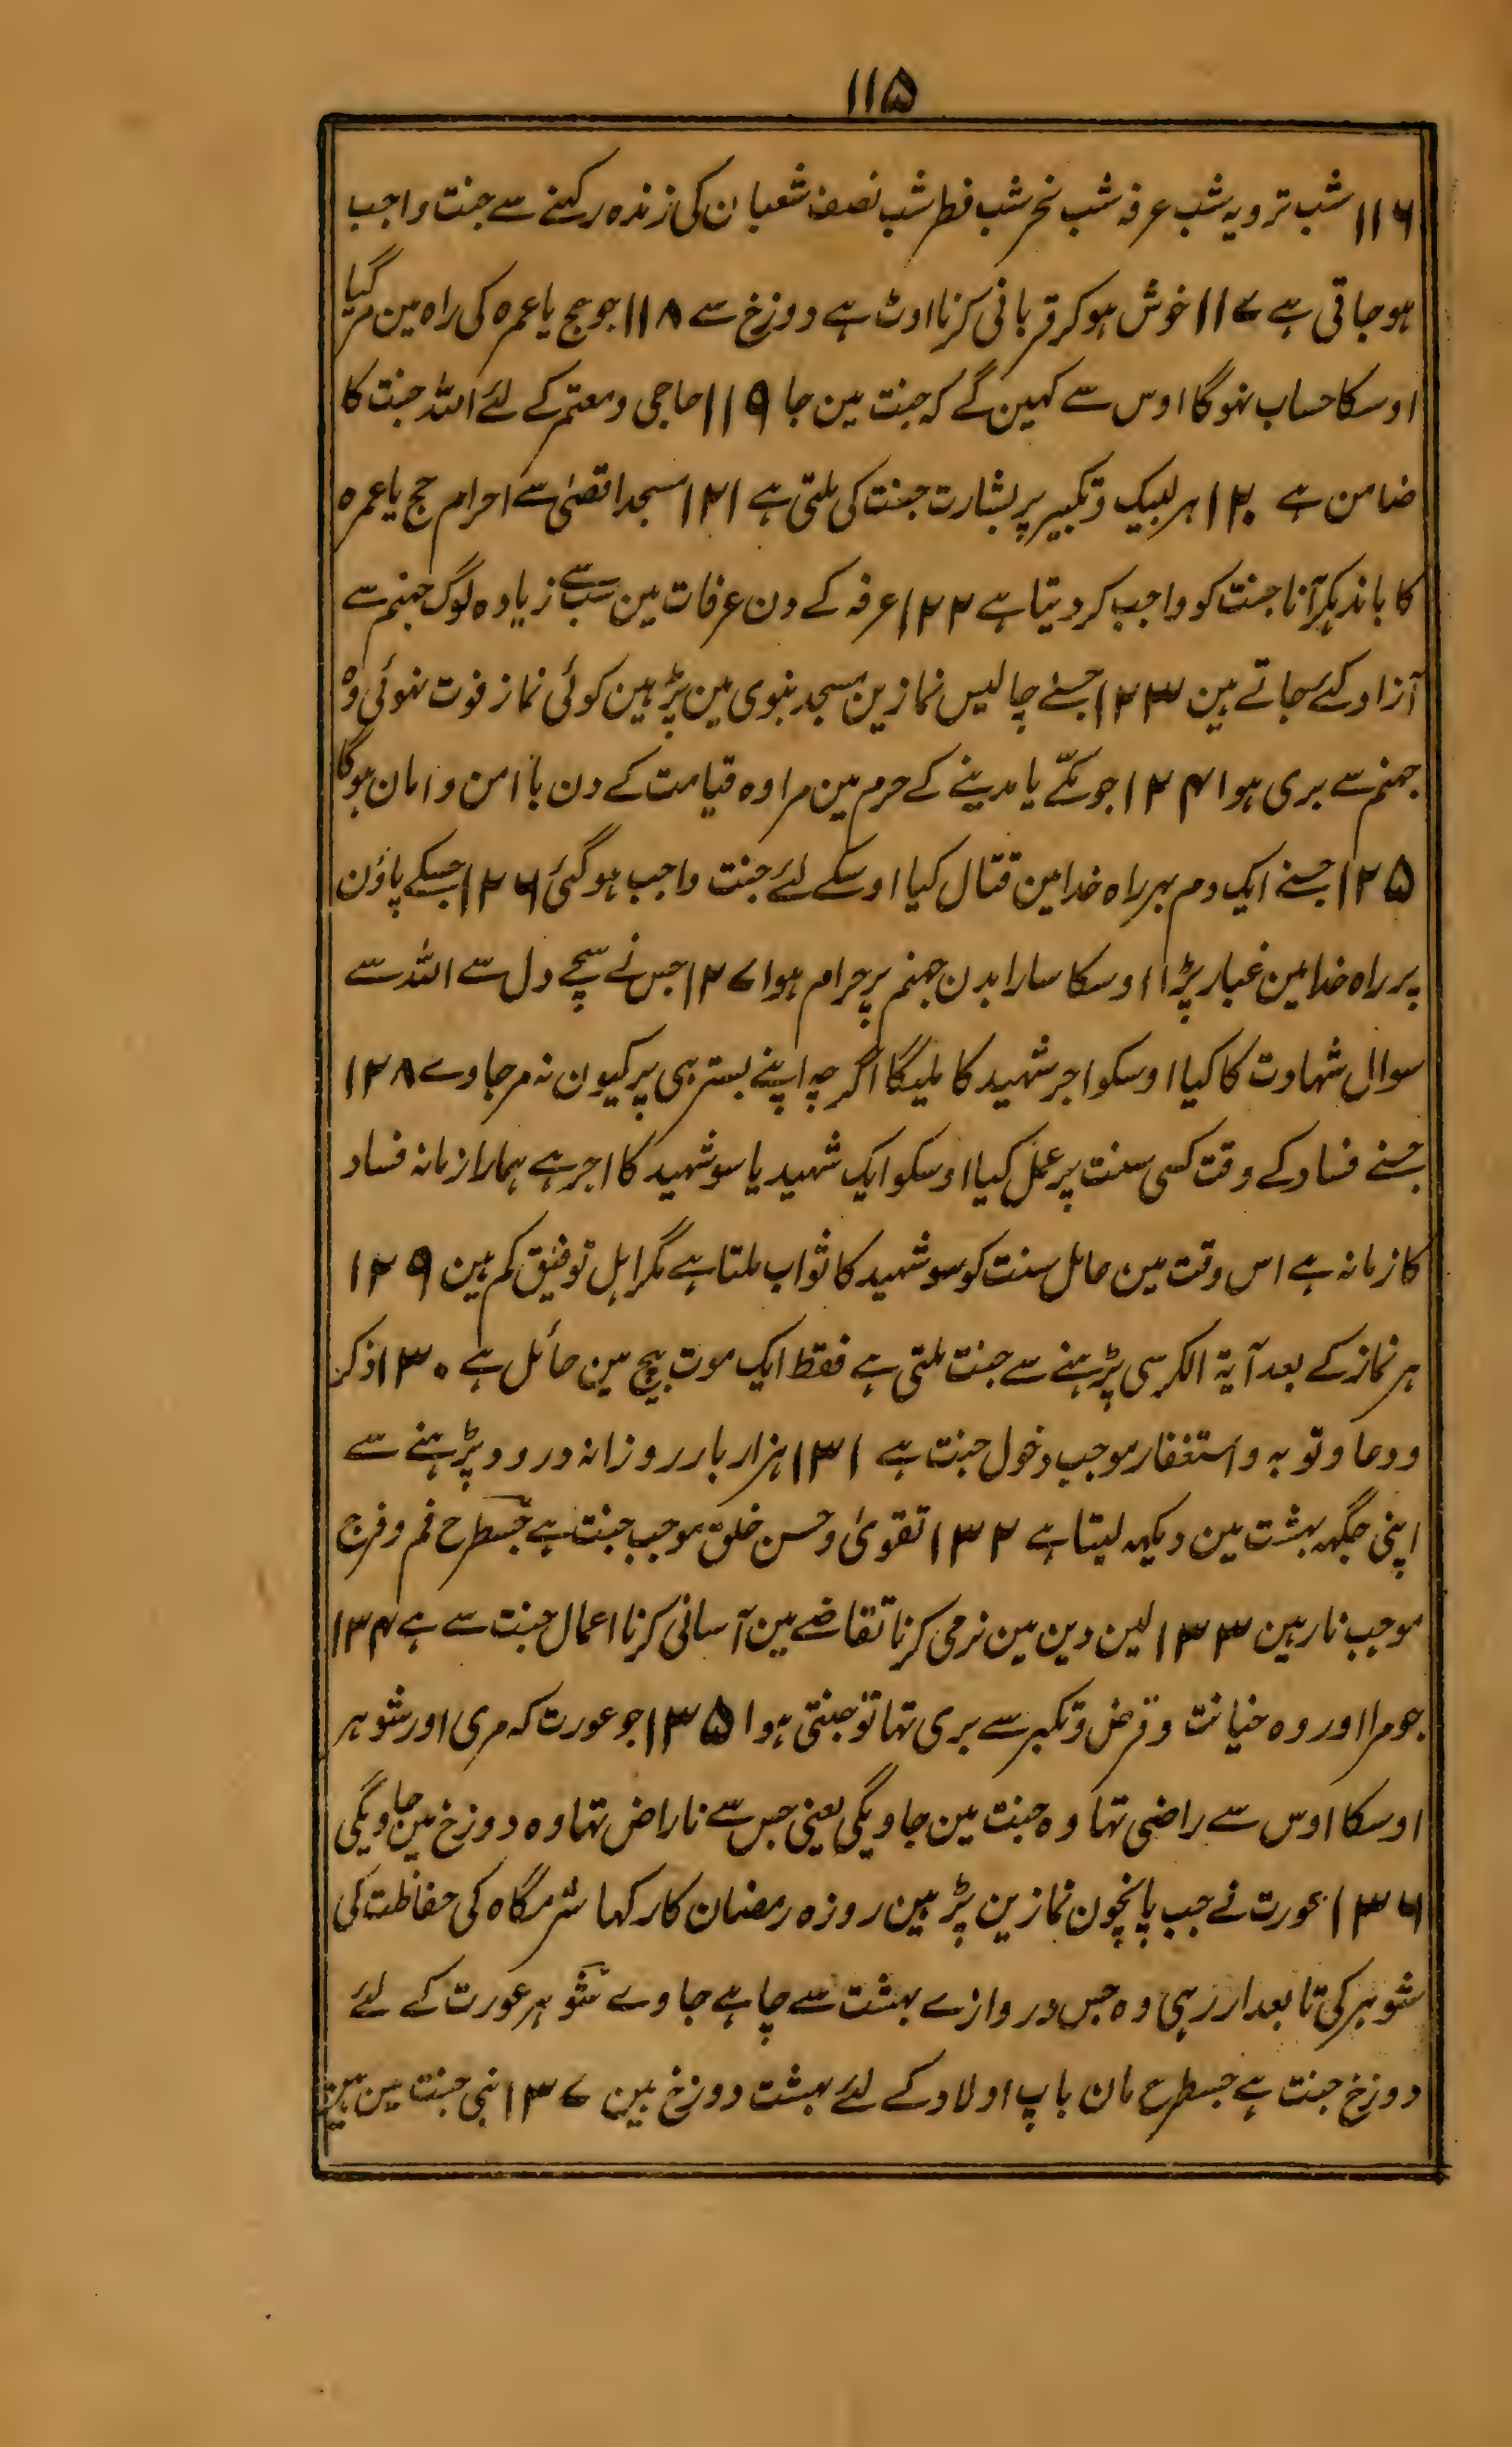 ۱۱۵
۱۱۶ شب ترویہ شب عرفہ شب نحر شب فطر شب نصف شعبان کی زندہ رکہنے سے جنت واجب
ہوجاتی ہے ۱۱۷ خوش ہوکر قربانی کرنا اوٹ ہے دوزخ سے ۱۱۸ جو حج یا عمرہ کی راہ مین مرگیا
اوسکا حساب نہوگا اوس سے کہین گے کہ جنت مین جا ۱۱۹ حاجی و معتمر کے لئے اللہ جنت کا
ضامن ہے ۱۲۰ ہر لبیک و تکبیر پر بشارت جنت کی ملتی ہے ۱۲۱ مسجد اقصیٰ سے احرام حج یا عمرہ
کا باندہکر آنا جنت کو واجب کر دیتا ہے ۱۲۲ عرفہ کے دن عرفات مین سب سے زیادہ لوگ جہنم سے
آزاد کئے جاتے ہین ۱۲۳ جسنے چالیس نمازین مسجد نبوی مین پڑہین کوئی نماز فوت نہوئی وہ
جہنم سے بری ہوا ۱۲۴ جو مکّے یا مدینے کے حرم مین مرا وہ قیامت کے دن با امن و امان ہوگا
۱۲۵ جسنے ایک دم بہر راہ خدا مین قتال کیا اوسکے لئے جنت واجب ہوگئی ۱۲۶ جسکے پاؤن
پر راہ خدا مین غبار پڑا اوسکا سارا بدن جہنم پر حرام ہوا ۱۲۷ جس نے سچے دل سے اللہ سے
سوال شہادت کا کیا اوسکو اجر شہید کا ملیگا اگرچہ اپنے بستر ہی پر کیون نہ مرجاوے ۱۲۸
جسنے فساد کے وقت کسی سنت پر عمل کیا اوسکو ایک شہید یا سو شہید کا اجر ہے ہمارا زمانہ فساد
کا زمانہ ہے اس وقت مین عامل سنت کو سو شہید کا ثواب ملتا ہے مگر اہل توفیق کم ہین ۱۲۹
ہر نماز کے بعد آیۃ الکرسی پڑہنے سے جنت ملتی ہے فقط ایک موت بیچ مین حائل ہے ۱۳۰ ذکر
ودعا وتوبہ واستغفار موجب دخول جنت ہے ۱۳۱ ہزار بار روزانہ درود پڑہنے سے
اپنی جگہہ بہشت مین دیکہہ لیتا ہے ۱۳۲ تقویٰ وحسن خلق موجب جنت ہے جسطرح فم و فرج
موجب نار ہین ۱۳۳ لین دین مین نرمی کرنا تقاضے مین آسانی کرنا اعمال جنت سے ہے ۱۳۴
جو مرا اور وہ خیانت و قرض و تکبر سے بری تہا تو جنتی ہوا ۱۳۵ جو عورت کہ مری اور شوہر
اوسکا اوس سے راضی تہا وہ جنت مین جاویگی یعنی جس سے ناراض تہا وہ دوزخ مین جاویگی
۱۳۶ عورت نے جب پانچون نمازین پڑہین روزہ رمضان کا رکہا شرمگاہ کی حفاظت کی
شوہر کی تابعدار رہی وہ جس دروازے بہشت سے چاہے جاوے شوہر عورت کے لئے
دوزخ جنت ہے جسطرح مان باپ اولاد کے لئے بہشت دوزخ ہین ۱۳۷ نبی جنت مین ہین